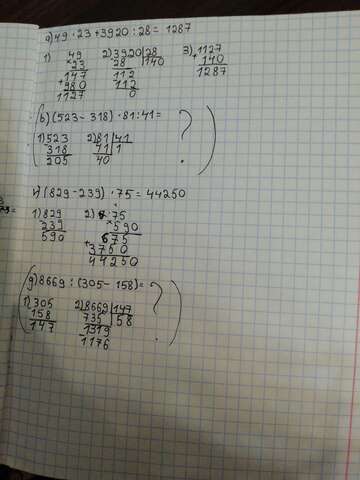 а) 49 · 23 + 3920 : 28 = 1287
1) 49 2) 3920 | 28 3) 1127
× 23 28 | 140 + 140
147 112 1287
+ 980 112
1127 0
б) (523 - 318) · 81 : 41 = ?
1) 523 2) 81 | 41
318 41 | 1
205 40
и) (829 - 239) · 75 = 44250
1) 829 2) 75
239 × 590
590 675
+ 3750
44250
g) 8669 : (305 - 158) = ?
1) 305 2) 8669 | 147
158 735 | 58
147 1319
1176